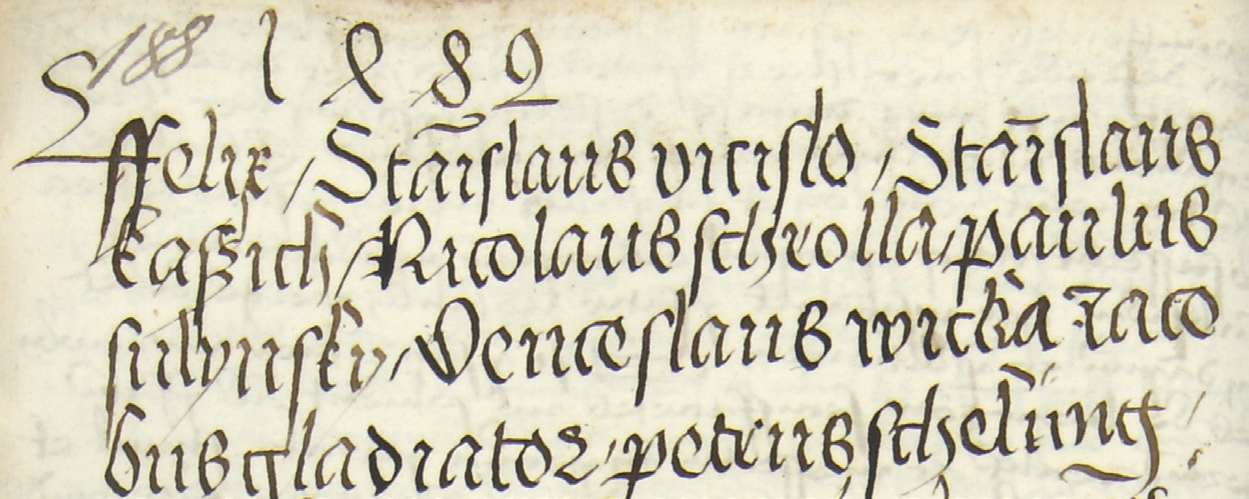 188 1 4 8 2
ffelix / Stāislaus vicislo / Stāislaus
kaßich / Nicolaus schrolla / paulus
sulynsky / Venceslaus wicka Jaco
bus gladiator / petrus schelūng /